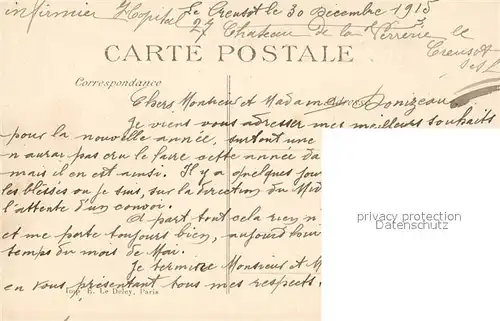 infirmier Hopital Le Creusot le 30 Décembre 1915
27 Chateau de la Verrerie le
Creusot
S et L
CARTE POSTALE
Correspondance
Chers Monsieur et Madame Donizeau
Je viens vous adresser mes meilleurs souhaits
pour la nouvelle année, surtout une
n aurai pas cru le faire cette année da
mais il en est ainsi. Il y a quelques jou
les blessés ou je suis, sur la direction du Mid
l'attente d'un convoi.
A part tout cela rien n
et me porte toujours bien, aujourd hui
temps du mois de Mai.
Je termine Monsieur et M
en vous présentant tous mes respects.
Imp. E. Le Deley, Paris
privacy protection
Datenschutz